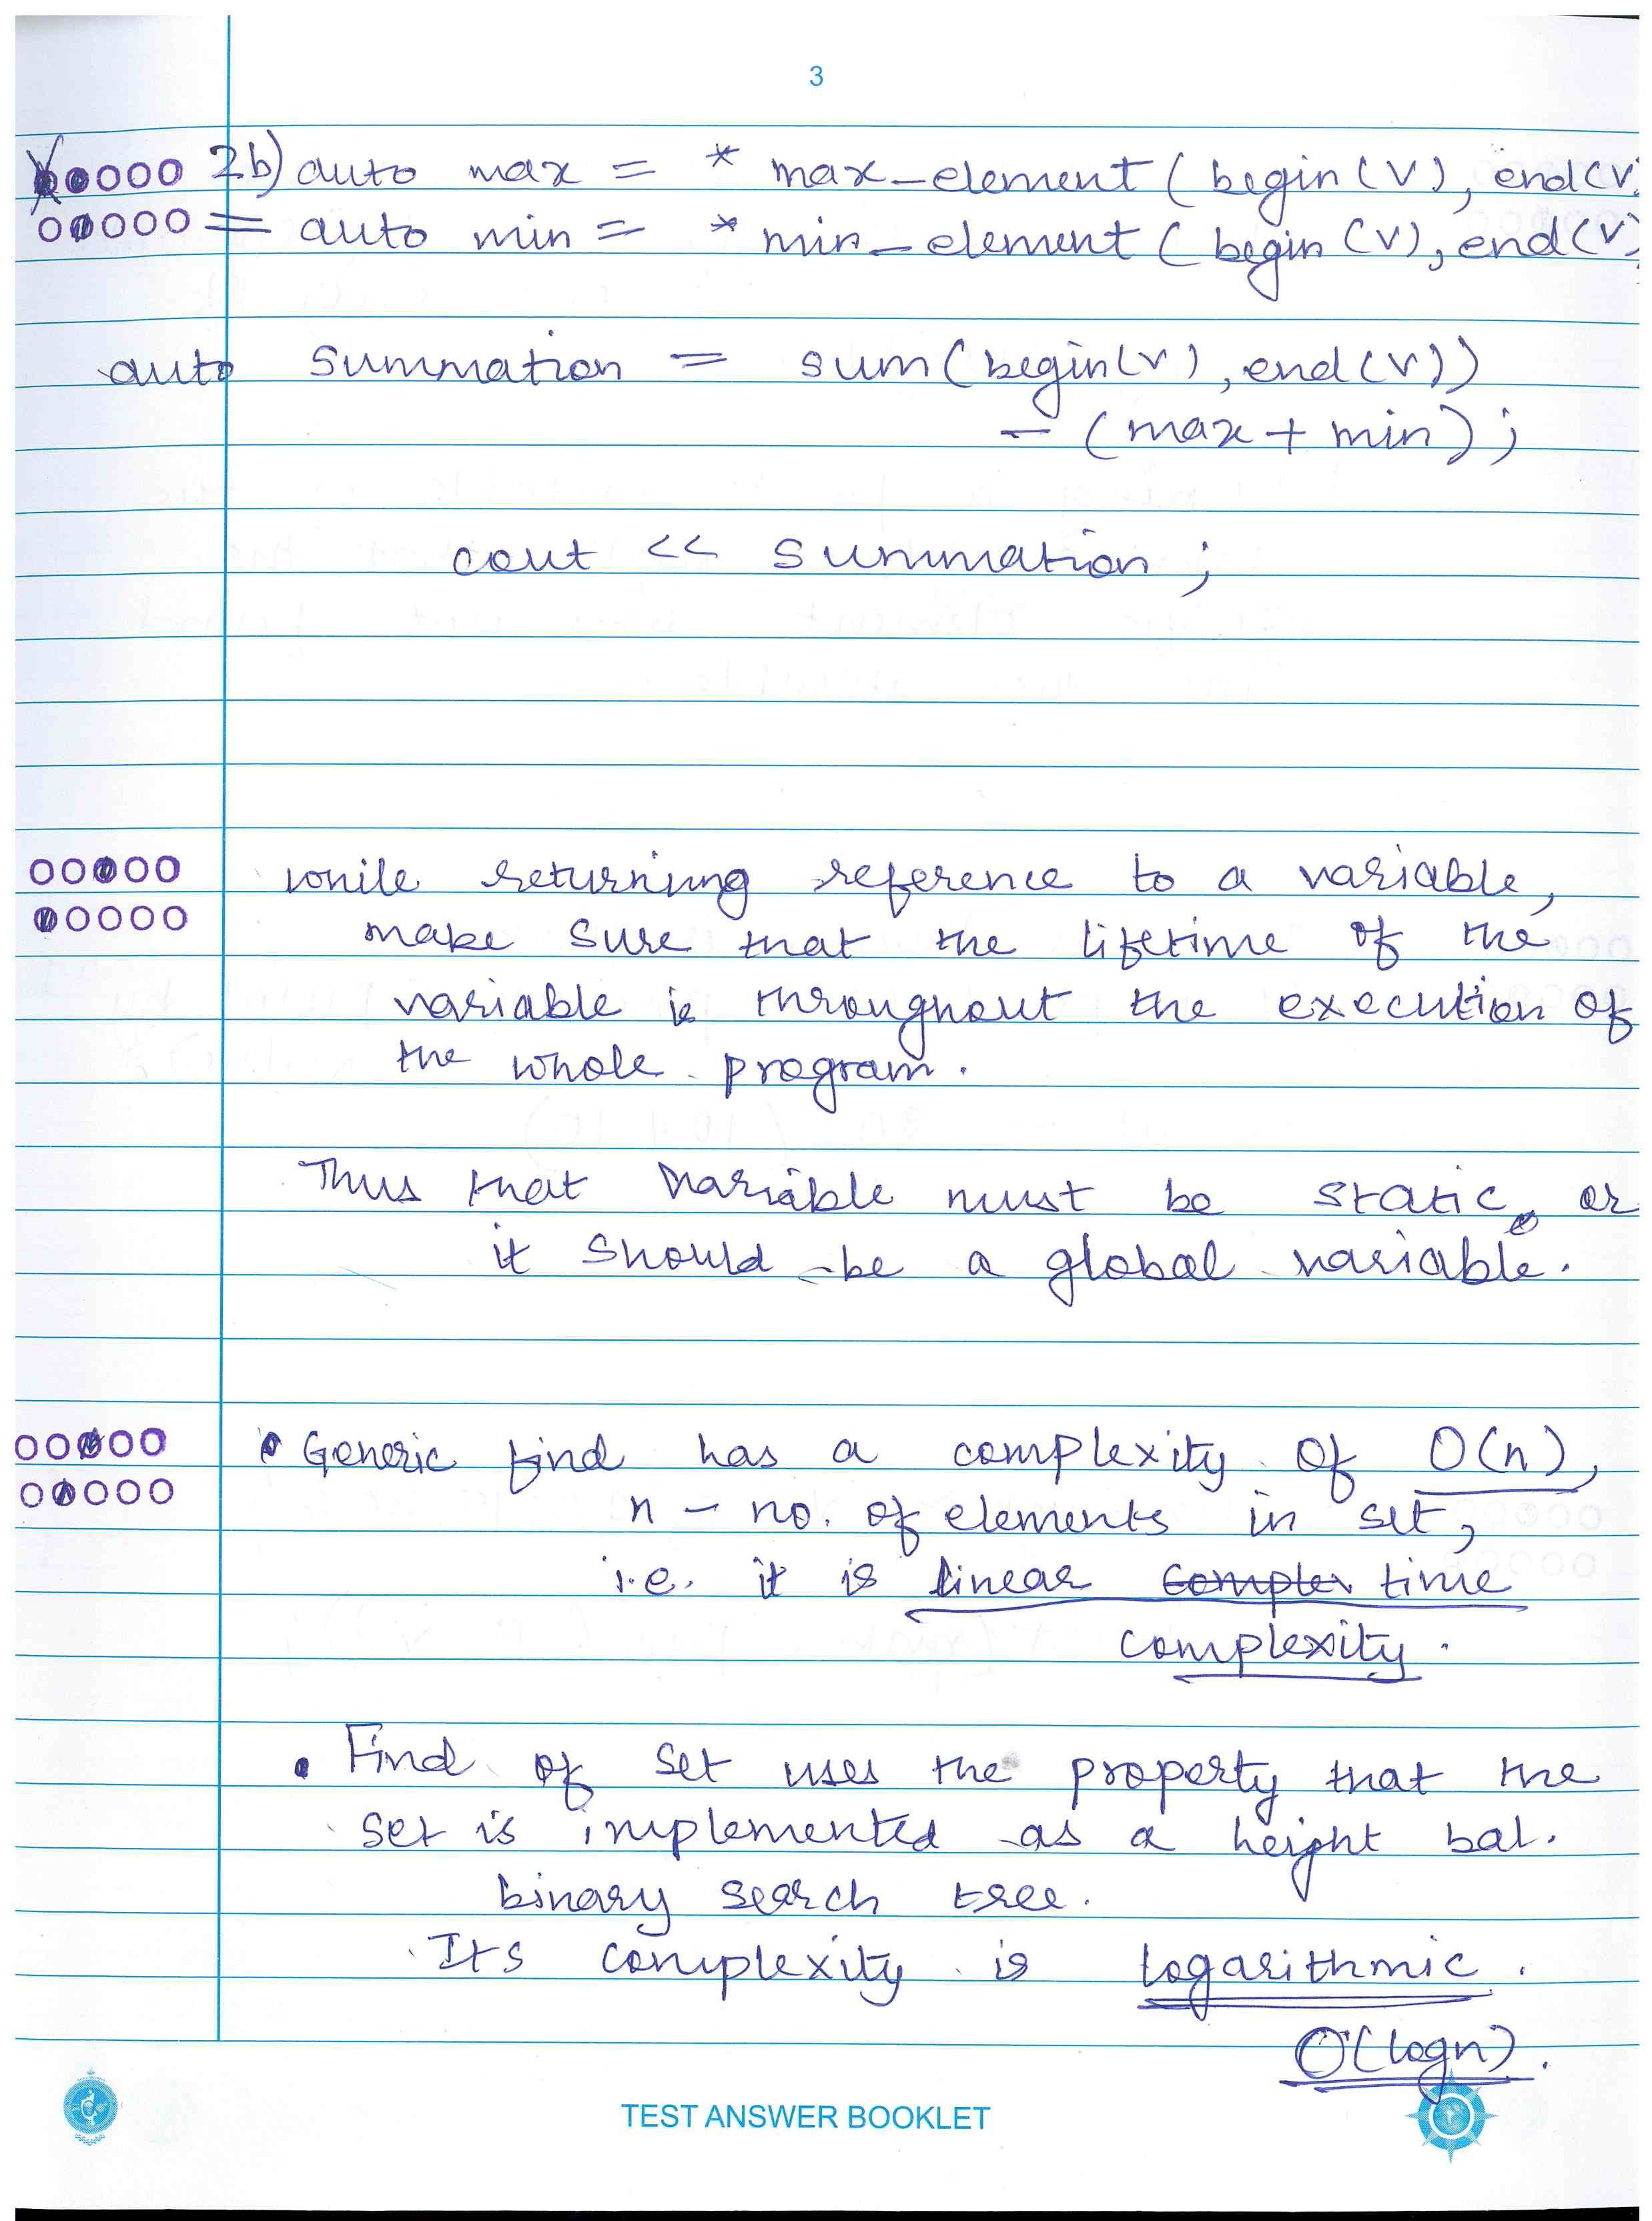 3
2b) auto max = * max_element ( begin (v), end(v
auto min = * min_element ( begin (v), end(v)
auto summation = sum(begin(v), end(v))
- (max + min);
cout << summation ;
while returning reference to a variable,
make sure that the lifetime of the
variable is throughout the execution of
the whole program.
Thus that variable must be static or
it should be a global variable.
• Generic find has a complexity of O(n),
n - no. of elements in set,
i.e. it is linear complex time
complexity.
• Find of set uses the property that the
set is implemented as a height bal.
binary search tree.
Its complexity is logarithmic.
O(logn).
TEST ANSWER BOOKLET